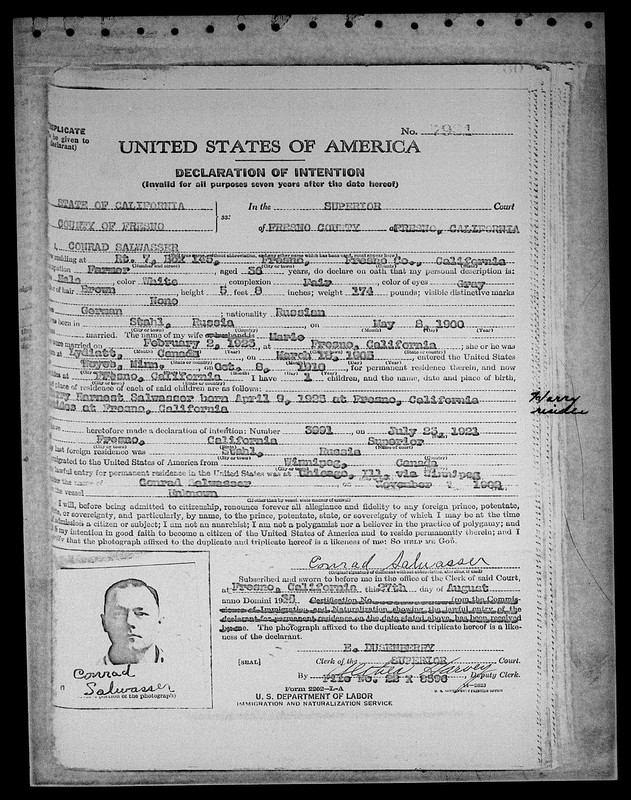 PLICATE
be given to
clarant)
No. 7921
UNITED STATES OF AMERICA
DECLARATION OF INTENTION
(Invalid for all purposes seven years after the date hereof)
STATE OF CALIFORNIA
COUNTY OF FRESNO
ss:
In the SUPERIOR Court
of FRESNO COUNTY at FRESNO, CALIFORNIA
I, CONRAD SALWASSER
residing at Rt. 7, Box 145, Fresno, Fresno Co., California
Farmer, aged years, do declare on oath that my personal description is:
Male, color White, complexion Fair, color of eyes Gray
of hair Brown, height 5 feet 8 inches; weight 174 pounds; visible distinctive marks
None
German; nationality Russian
born in Stahl, Russia, on May 8, 1900
married. The name of my wife or husband is Marie
married on February 2, 1923, at Fresno, California; she or he was
at Canada, on March 1905, entered the United States
Noyes, Minn., on Oct. 8, 1910, for permanent residence therein, and now
at Fresno, California. I have 1 children, and the name, date and place of birth,
place of residence of each of said children are as follows:
rry Earnest Salwasser born April 9, 1925 at Fresno, California
sides at Fresno, California
Harry
resides
heretofore made a declaration of intention: Number 3991, on July 23, 1921
Fresno, California Superior
last foreign residence was Stahl, Russia
grated to the United States of America from Winnipeg, Canada
lawful entry for permanent residence in the United States was at Chicago, Ill. via Winnipeg
the name of Conrad Salwasser, on November 1909
vessel Unknown
(If other than by vessel, state manner of arrival)
I will, before being admitted to citizenship, renounce forever all allegiance and fidelity to any foreign prince, potentate,
or sovereignty, and particularly, by name, to the prince, potentate, state, or sovereignty of which I may be at the time
admission a citizen or subject; I am not an anarchist; I am not a polygamist nor a believer in the practice of polygamy; and
my intention in good faith to become a citizen of the United States of America and to reside permanently therein; and I
that the photograph affixed to the duplicate and triplicate hereof is a likeness of me: So HELP ME GOD.
Conrad Salwasser
Subscribed and sworn to before me in the office of the Clerk of said Court,
at Fresno, California this day of August
anno Domini 19 Certification No. from the Commis-
sioner of Immigration and Naturalization showing the lawful entry of the
declarant for permanent residence on the date stated above, has been received
by me. The photograph affixed to the duplicate and triplicate hereof is a like-
ness of the declarant.
E. DUSENBERRY
[SEAL] Clerk of the SUPERIOR Court.
By Deputy Clerk.
File No. 23 X 8596
Conrad
Salwasser
portion of the photograph)
Form 2202-L-A
U. S. DEPARTMENT OF LABOR
IMMIGRATION AND NATURALIZATION SERVICE
14-2623
U. S. GOVERNMENT PRINTING OFFICE